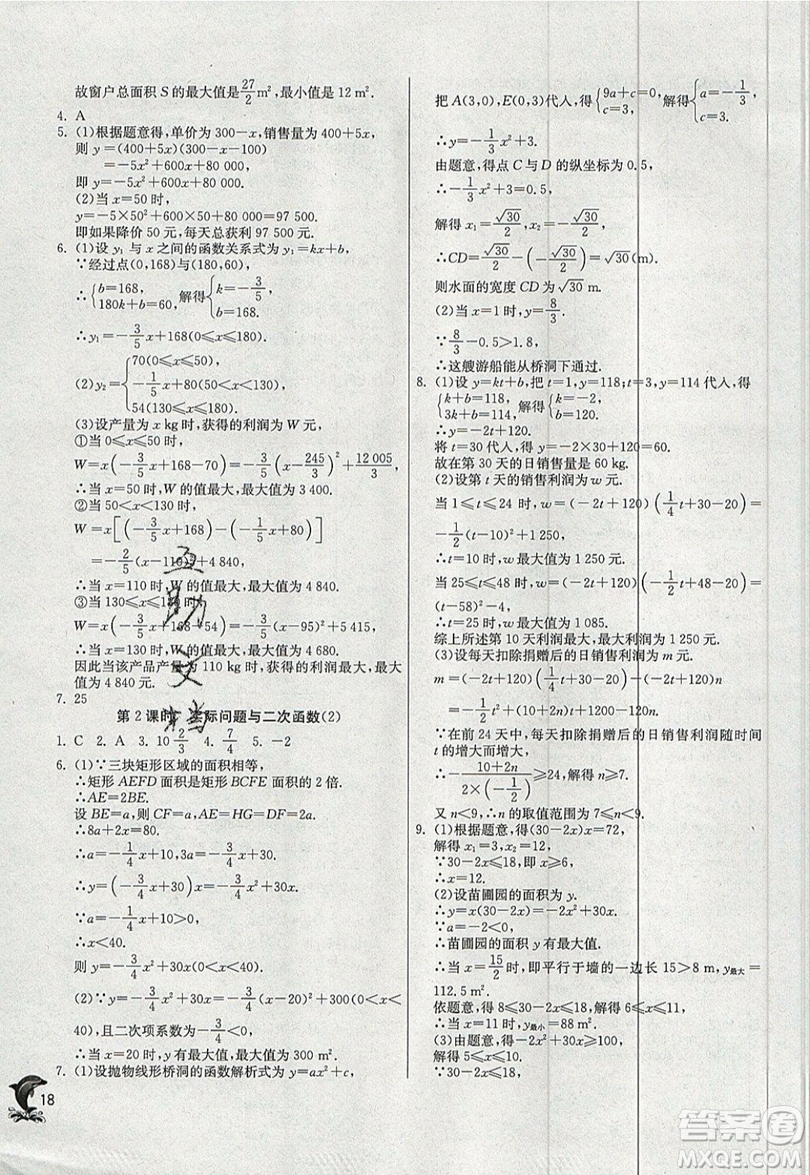 故窗户总面积 S 的最大值是27/2 m²,最小值是 12 m².
4. A
5. (1)根据题意得,单价为 300-x,销售量为 400+5x,
则 y=(400+5x)(300-x-100)
=-5x²+600x+80 000,
即 y=-5x²+600x+80 000.
(2)当 x=50 时,
y=-5×50²+600×50+80 000=97 500.
即如果降价 50 元,每天总获利 97 500 元.
6. (1)设 y₁ 与 x 之间的函数关系式为 y₁=kx+b,
∵经过点(0,168)与(180,60),
∴{b=168, 180k+b=60, 解得{k=-3/5, b=168.
∴y₁=-3/5x+168(0≤x≤180).
(2)y₂={70(0≤x≤50), -1/5x+80(50<x<130), 54(130≤x≤180).
(3)设产量为 x kg 时,获得的利润为 W 元.
①当 0≤x≤50 时,
W=x(-3/5x+168-70)=-3/5(x-245/3)²+12 005/3,
∴当 x=50 时,W 的值最大,最大值为 3 400.
②当 50<x<130 时,
W=x[(-3/5x+168)-(-1/5x+80)]
=-2/5(x-110)²+4 840,
∴当 x=110 时,W 的值最大,最大值为 4 840.
③当 130≤x≤180 时,
W=x(-3/5x+168-54)=-3/5(x-95)²+5 415,
∴当 x=130 时,W 的值最大,最大值为 4 680.
因此当该产品产量为 110 kg 时,获得的利润最大,最大值为 4 840 元.
7. 25
第 2 课时 实际问题与二次函数(2)
1. C 2. A 3. 10 2/3 4. 7/4 5. -2
6. (1)∵三块矩形区域的面积相等,
∴矩形 AEFD 面积是矩形 BCFE 面积的 2 倍.
∴AE=2BE.
设 BE=a,则 CF=a,AE=HG=DF=2a.
∴8a+2x=80.
∴a=-1/4x+10,3a=-3/4x+30.
∴y=(-3/4x+30)x=-3/4x²+30x.
∵a=-1/4x+10>0,
∴x<40.
则 y=-3/4x²+30x(0<x<40).
(2)∵y=-3/4x²+30x=-3/4(x-20)²+300(0<x<
40),且二次项系数为-3/4<0,
∴当 x=20 时,y 有最大值,最大值为 300 m².
7. (1)设抛物线形桥洞的函数解析式为 y=ax²+c,
把 A(3,0),E(0,3)代人,得{9a+c=0, c=3, 解得{a=-1/3, c=3.
∴y=-1/3x²+3.
由题意,得点 C 与 D 的纵坐标为 0.5,
∴-1/3x²+3=0.5,
解得 x₁=√30/2,x₂=-√30/2,
∴CD=√30/2-(-√30/2)=√30(m).
则水面的宽度 CD 为 √30 m.
(2)当 x=1 时,y=8/3.
∵8/3-0.5>1.8,
∴这艘游船能从桥洞下通过.
8. (1)设 y=kt+b,把 t=1,y=118;t=3,y=114 代人,得
{k+b=118, 3k+b=114, 解得{k=-2, b=120.
∴y=-2t+120.
将 t=30 代人,得 y=-60+120=60.
故在第 30 天的日销售量是 60 kg.
(2)设第 t 天的销售利润为 w 元.
当 1≤t≤24 时,w=(-2t+120)(1/4t+30-20)=
-1/2(t-10)²+1 250,
∴t=10 时,w 最大值为 1 250.
当 25≤t≤48 时,w=(-2t+120)(-1/2t+48-20)=
(t-58)²-4,
∴t=25 时,w 最大值为 1 085.
综上所述第 10 天利润最大,最大利润为 1 250 元.
(3)设每天扣除捐赠后的日销售利润为 m 元.
m=(-2t+120)(1/4t+30-20)-(-2t+120)n
=-1/2t²+(10+2n)t+1 200-120n,
∵在前 24 天中,每天扣除捐赠后的日销售利润随时间
t 的增大而增大,
∴-(10+2n)/(2×(-1/2))≥24,解得 n≥7.
又 n<9,∴n 的取值范围为 7≤n<9.
9. (1)根据题意,得(30-2x)x=72,
解得 x₁=3,x₂=12,
∵30-2x≤18,即 x≥6,
∴x=12.
(2)设苗圃园的面积为 y.
∴y=x(30-2x)=-2x²+30x.
∵a=-2<0,
∴苗圃园的面积 y 有最大值.
∴当 x=15/2 时,即平行于墙的一边长 15>8 m,y最大=
112.5 m².
依题意,得 8≤30-2x≤18,解得 6≤x≤11,
∴当 x=11 时,y最小=88 m².
(3)由题意,得-2x²+30x≥100,
解得 5≤x≤10.
18
互
助
文
档
答案圈
MXQE.COM